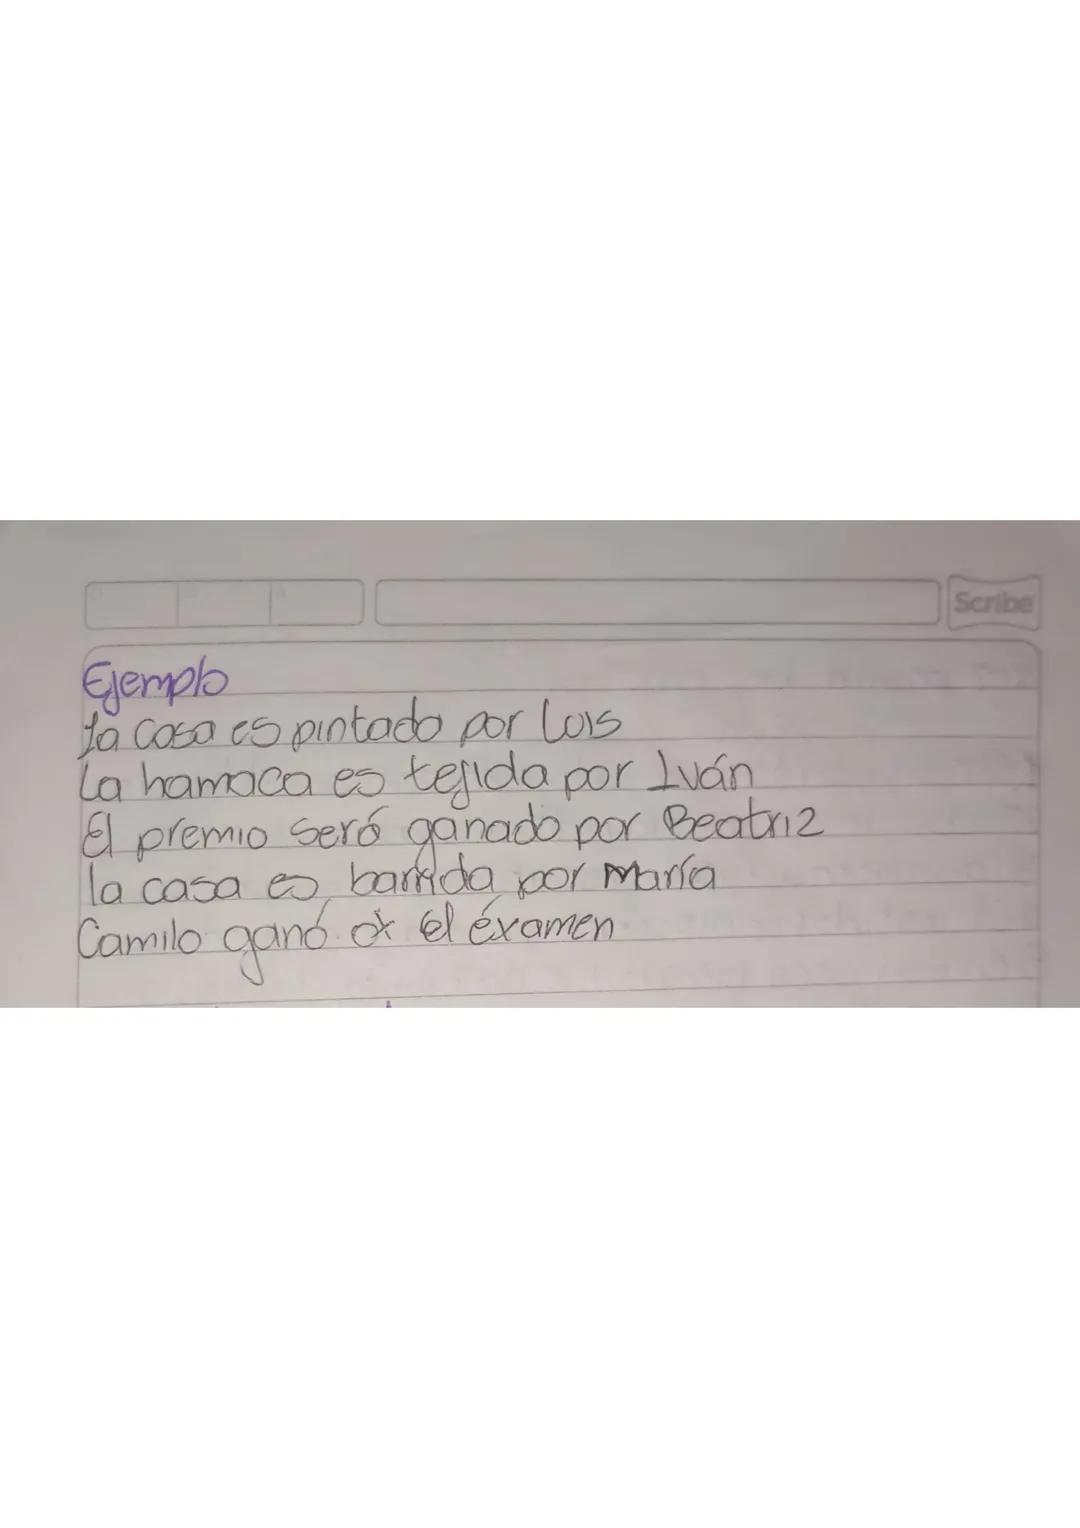 Scribe
Ejemplo
La casa es pintado por Luis
La hamaca es tejida por Iván
El premio será ganado por Beatriz
la casa es barrida por María
Camilo ganó el éxamen